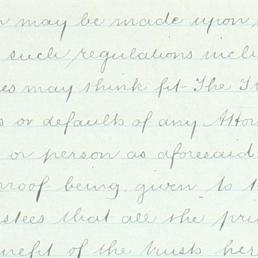 may be made upon
such regulations inclu
es may think fit The Tr
s or defaults of any Attor
or person as aforesaid
roof being given to t
stees that all the pri
nefit of the trusts her